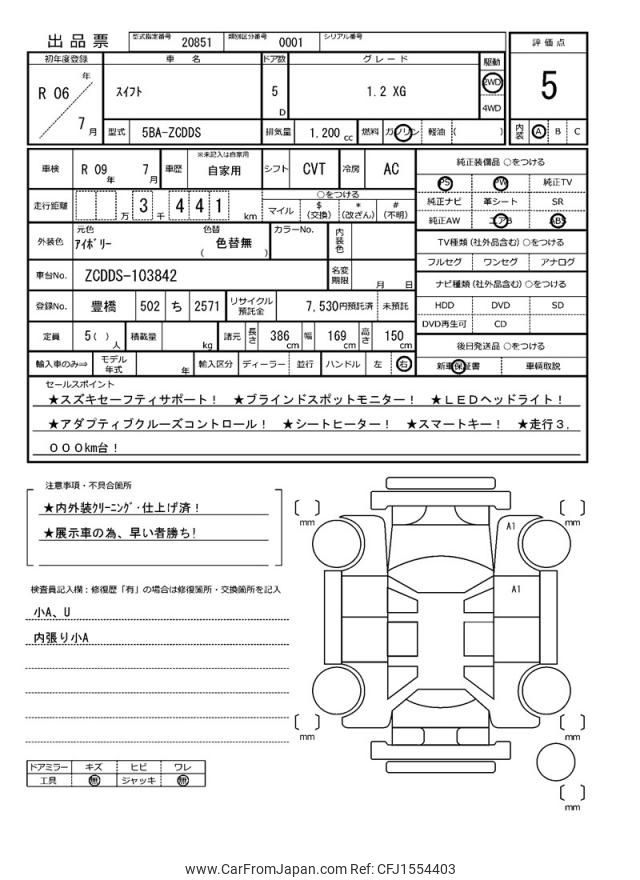 出品票 型式指定番号 20851 類別区分番号 0001 シリアル番号
評価点
5
内装 A B C
初年度登録 車名 ドア数 グレード 駆動
R 06 年 7 月 スイフト 5 D 1.2 XG 2WD 4WD
型式 5BA-ZCDDS 排気量 1,200 cc 燃料 ガソリン 軽油 ( )
車検 R 09 年 7 月 車歴 ※未記入は自家用 自家用 シフト CVT 冷房 AC
走行距離 万 3 千 4 4 1 km ○をつける
マイル $ (交換) * (改ざん) # (不明)
外装色 元色 アイボリー 色替 ( 色替無 ) カラーNo. 内装色
車台No. ZCDDS-103842 名変期限 月 日
登録No. 豊橋 502 ち 2571 リサイクル預託金 7,530円預託済 未預託
定員 5 ( ) 人 積載量 kg 諸元 長さ 386 cm 幅 169 cm 高さ 150 cm
輸入車のみ⇒ モデル年式 年 輸入区分 ディーラー 並行 ハンドル 左 右
純正装備品 ○をつける
PS PW 純正TV
純正ナビ 革シート SR
純正AW エアB ABS
TV種類 (社外品含む) ○をつける
フルセグ ワンセグ アナログ
ナビ種類 (社外品含む) ○をつける
HDD DVD SD
DVD再生可 CD
後日発送品 ○をつける
新車保証書 車輌取説
セールスポイント
★スズキセーフティサポート! ★ブラインドスポットモニター! ★LEDヘッドライト!
★アダプティブクルーズコントロール! ★シートヒーター! ★スマートキー! ★走行3,
000km台!
注意事項・不具合箇所
★内外装クリーニング・仕上げ済!
★展示車の為、早い者勝ち!
検査員記入欄:修復歴「有」の場合は修復箇所・交換箇所を記入
小A、U
内張り小A
ドアミラー キズ ヒビ ワレ
工具 無 ジャッキ 無
mm
mm
A1
A1
mm
mm
mm
www.CarFromJapan.com Ref: CFJ1554403